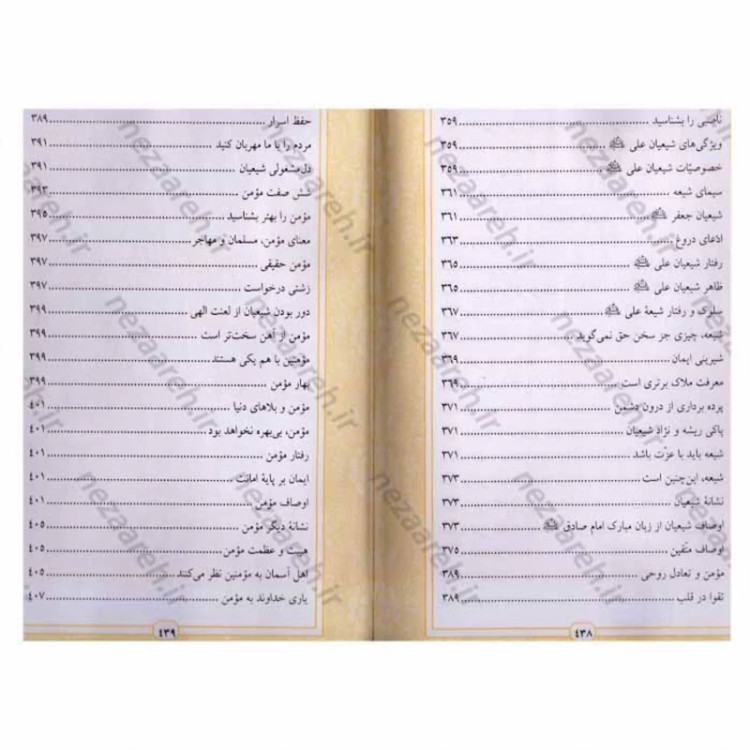 ناصبی را بشناسید ... ۳۵۹
ویژگی‌های شیعیان علی ... ۳۵۹
خصوصیّات شیعیان علی ... ۳۵۹
سیمای شیعه ... ۳۶۱
شیعیان جعفر ... ۳۶۱
ادّعای دروغ ... ۳۶۳
رفتار شیعیان علی ... ۳۶۵
ظاهر شیعیان علی ... ۳۶۵
سلوک و رفتار شیعهٔ علی ... ۳۶۷
شیعه، چیزی جز سخن حق نمی‌گوید ... ۳۶۷
شیرینی ایمان ... ۳۶۹
معرفت ملاک برتری است ... ۳۶۹
پرده برداری از درون دشمن ... ۳۷۱
پاکی ریشه و نژاد شیعیان ... ۳۷۱
شیعه باید با عزّت باشد ... ۳۷۱
شیعه، این‌چنین است ... ۳۷۳
نشانهٔ شیعیان ... ۳۷۳
اوصاف شیعیان از زبان مبارک امام صادق ... ۳۷۳
اوصاف متّقین ... ۳۷۵
مؤمن و تعادل روحی ... ۳۸۹
تقوا در قلب ... ۳۸۹
۴۳۸
حفظ اسرار ... ۳۸۹
مردم را با ما مهربان کنید ... ۳۹۱
دل‌مشغولی شیعیان ... ۳۹۱
شش صفت مؤمن ... ۳۹۳
مؤمن را بهتر بشناسید ... ۳۹۵
معنای مؤمن، مسلمان و مهاجر ... ۳۹۷
مؤمن حقیقی ... ۳۹۷
زشتی درخواست ... ۳۹۷
دور بودن شیعیان از لعنت الهی ... ۳۹۹
مؤمن از آهن سخت‌تر است ... ۳۹۹
مؤمنین با هم یکی هستند ... ۳۹۹
بهار مؤمن ... ۳۹۹
مؤمن و بلاهای دنیا ... ۴۰۱
مؤمن، بی‌بهره نخواهد بود ... ۴۰۱
رفتار مؤمن ... ۴۰۱
ایمان بر پایهٔ امانت ... ۴۰۱
اوصاف مؤمن ... ۴۰۱
نشانهٔ دیگر مؤمن ... ۴۰۵
هیبت و عظمت مؤمن ... ۴۰۵
اهل آسمان به مؤمنین نظر می‌کنند ... ۴۰۵
یاری خداوند به مؤمن ... ۴۰۷
۴۳۹
nezaareh.ir